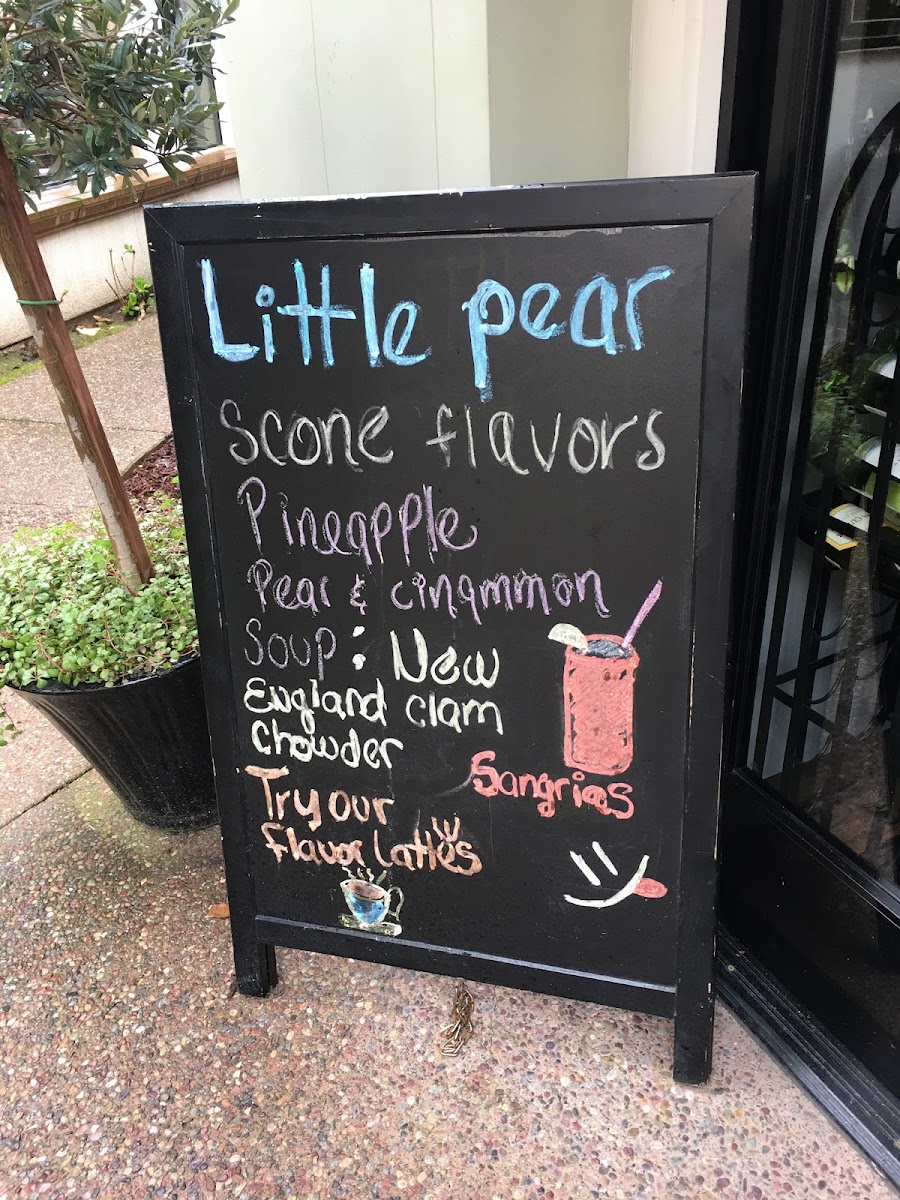 Little pear
Scone flavors
Pineapple
Pear & cinammon
Soup: New
England clam
Chowder
Sangrias
Try our
flavor Lattes